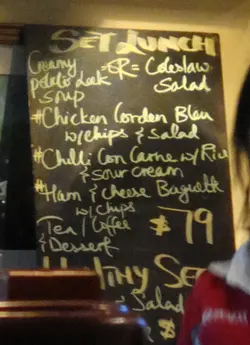 SET LUNCH
Creamy =OR= Coleslaw
Potato Leek Salad
Soup
#Chicken Cordon Bleu
w/chips & Salad
#Chilli Con Carne w/ Rice
& Sour cream
#Ham & Cheese Baguette
w/ chips
Tea / Coffee $79
& Dessert
Salad
$